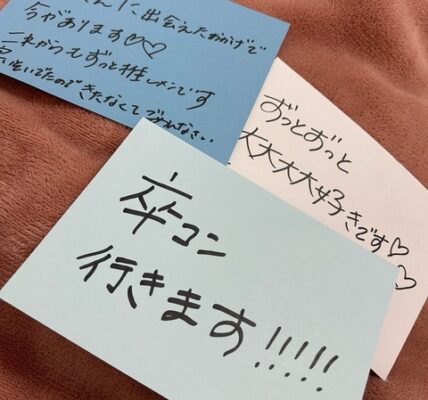 くんに出会えたおかげで
今があります♡♡
これからもずっと推しメンです
急いでたのできたなくてごめんなさい
ずっとずっと
大大大大好きです♡
卒コン
行きます!!!!!